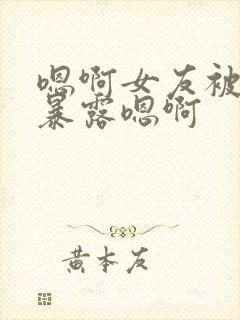 嗯啊女友被
暴露嗯啊
黄本友